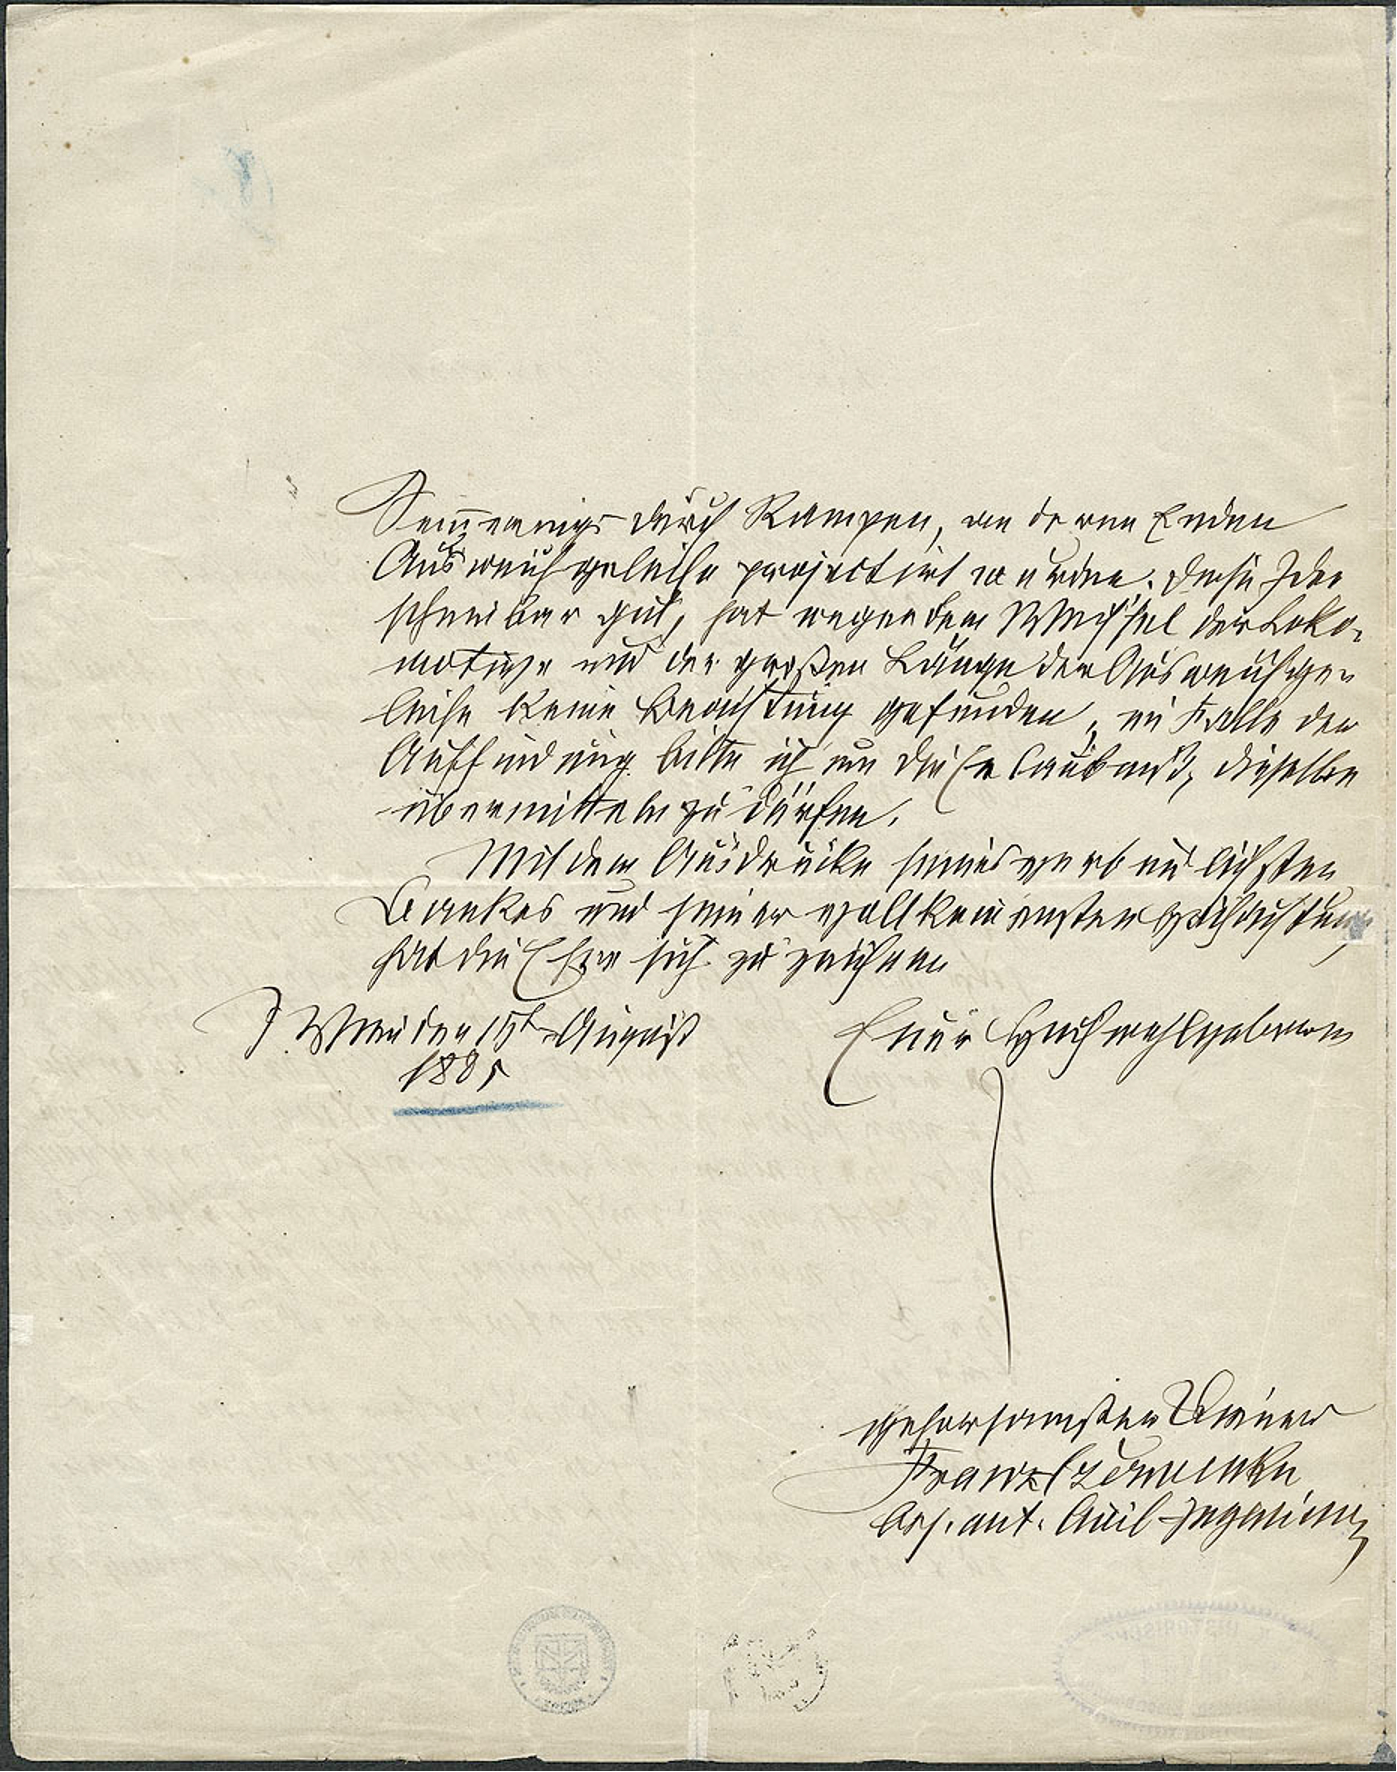 Semmerings durch Rampen, an deren Enden
Ausweichgeleise projectirt wurden. Diese Idee
scheinbar gut, hat wegen dem Wechsel der Loko-
motive und der großen Länge der Ausweichge-
leise keine Beachtung gefunden, im Falle der
Auffindung bitte ich um die Erlaubniß, dieselbe
übermitteln zu dürfen.
Mit dem Ausdrucke seines verbindlichsten
Dankes und seiner vollkommensten Hochachtung
hat die Ehre sich zu zeichnen
Wien den 15t August
1885
Euer Hochwohlgeboren
gehorsamster Diener
Franz
aut. Civil-Ingenieur
HISTORISCHES